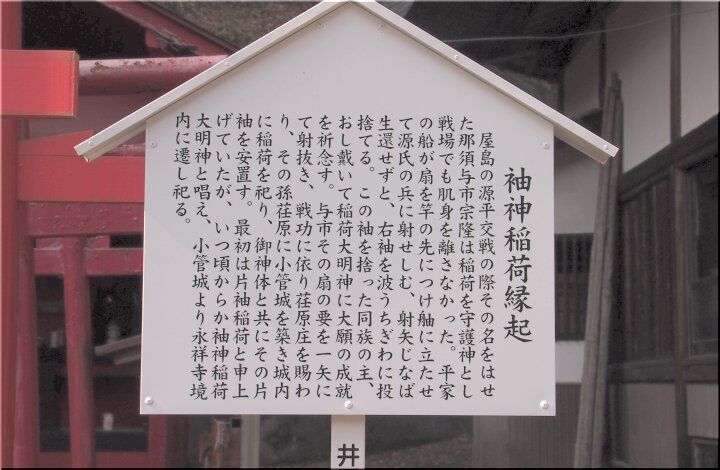 袖神稲荷縁起
屋島の源平交戦の際その名をはせ
た那須与市宗隆は稲荷を守護神とし
戦場でも肌身を離さなかった。平家
の船が扇を竿の先につけ舳に立たせ
て源氏の兵に射せしむ、射矢じなば
生還せずと、右袖を波うちぎわに投
捨てる。この袖を捨った同族の主、
おし戴いて稲荷大明神に大願の成就
を祈念す。与市その扇の要を一矢に
て射抜き、戦功に依り荏原庄を賜わ
り、その孫荏原に小管城を築き城内
に稲荷を祀り、御神体と共にその片
袖を安置す。最初は片袖稲荷と申上
げていたが、いつ頃からか袖神稲荷
大明神と唱え、小管城より永祥寺境
内に遷し祀る。
井